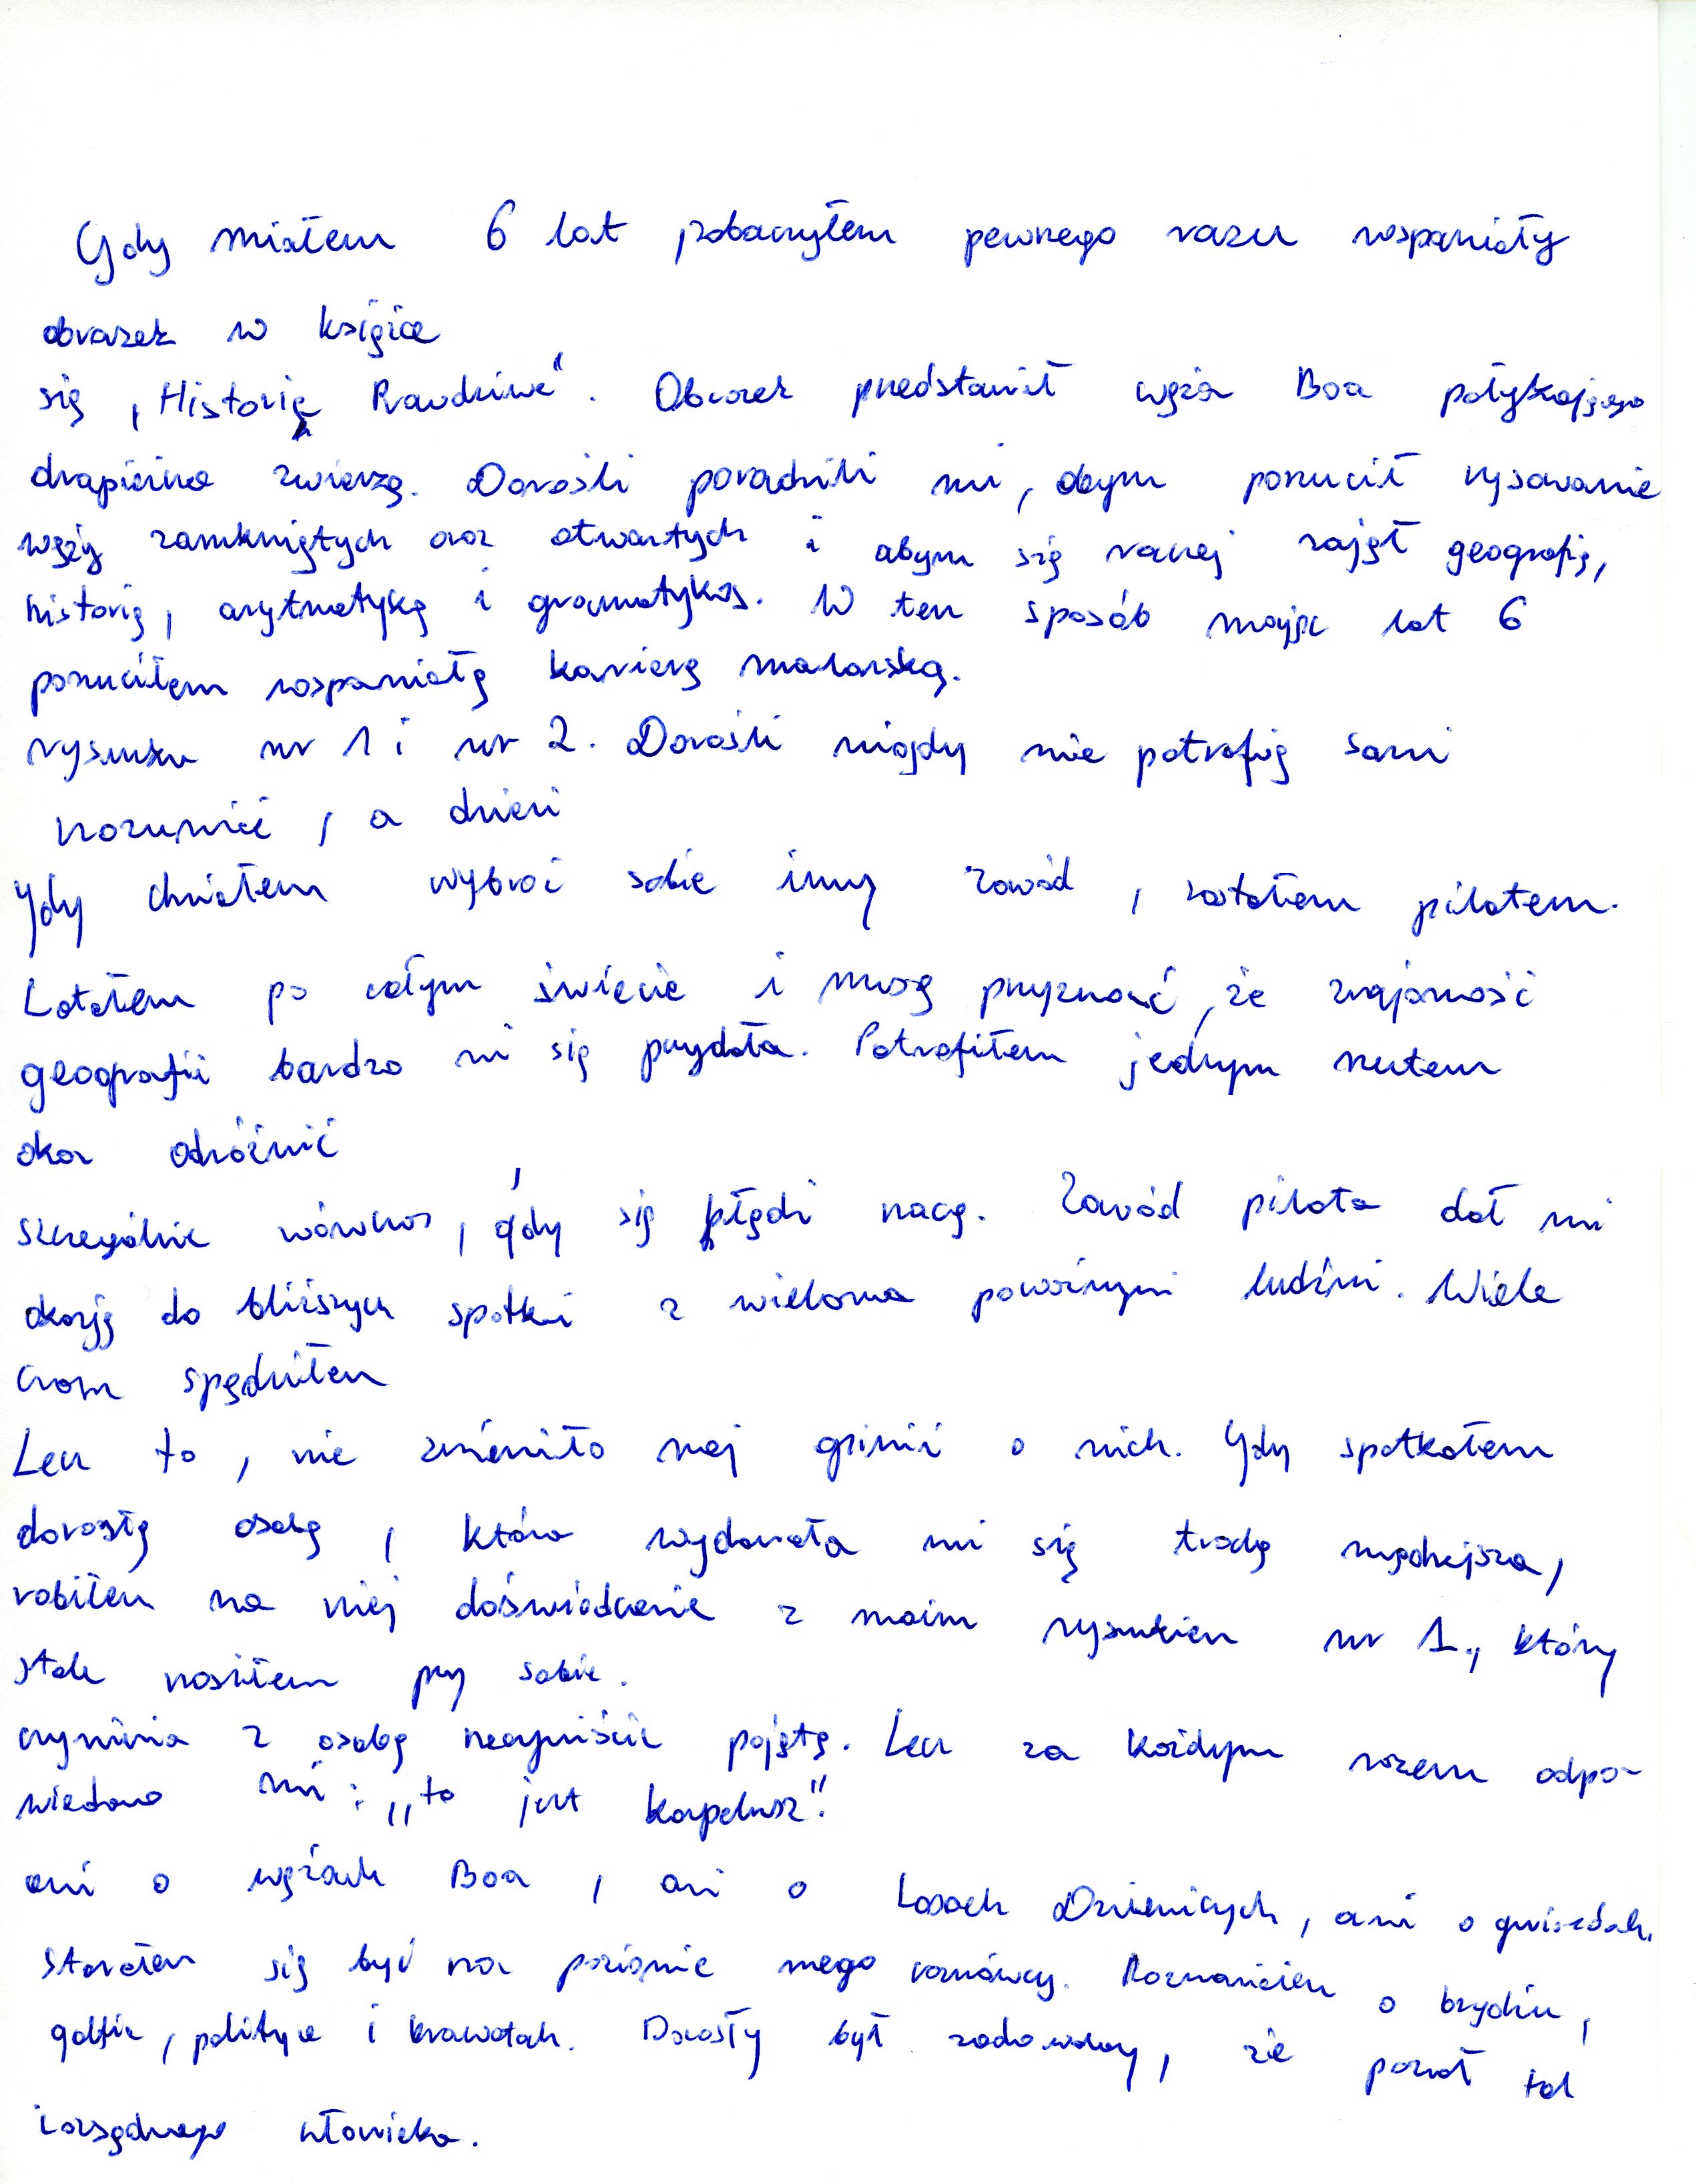 Gdy miałem 6 lat zobaczyłem pewnego razu wspaniały
obrazek w książce
się „Historię Prawdziwe". Obrazek przedstawił węża Boa połykającego
drapieżne zwierzę. Dorośli poradzili mi, abym porzucił rysowanie
węży zamkniętych oraz otwartych i abym się raczej zajął geografią,
historią, arytmetyką i gramatyką. W ten sposób mając lat 6
porzuciłem wspaniałą karierę malarską.
rysunku nr 1 i nr 2. Dorośli nigdy nie potrafią sami
zrozumieć, a dzieci
Gdy chciałem wybrać sobie inny zawód, zostałem pilotem.
Latałem po całym świecie i muszę przyznać, że znajomość
geografii bardzo mi się przydała. Potrafiłem jednym rzutem
oka odróżnić
szczególnie wówczas, gdy się błądzi nocą. Zawód pilota dał mi
okazję do bliższych spotkań z wieloma poważnymi ludźmi. Wiele
czasu spędziłem
Lecz to, nie zmieniło mej opinii o nich. Gdy spotkałem
dorosłą osobę, która wydawała mi się trochę mądrzejsza,
robiłem na niej doświadczenie z moim rysunkiem nr 1., który
stale nosiłem przy sobie.
czynienia z osobą rzeczywiście pojętą. Lecz za każdym razem odpo-
wiadano mi: „to jest kapelusz".
ani o wężach Boa, ani o Lasach Dziewiczych, ani o gwiazdach.
Starałem się być na poziomie mego rozmówcy. Rozmawiałem o brydżu,
golfie, polityce i krawatach. Dorosły był zadowolony, że poznał tak
rozsądnego człowieka.